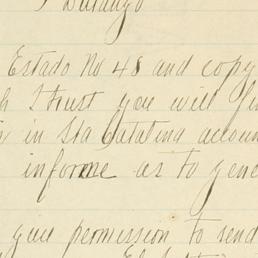 Durango
Estado No 48 and copy
I trust you will
in Sta Catalina accoun
informe as to gene
give permission to send